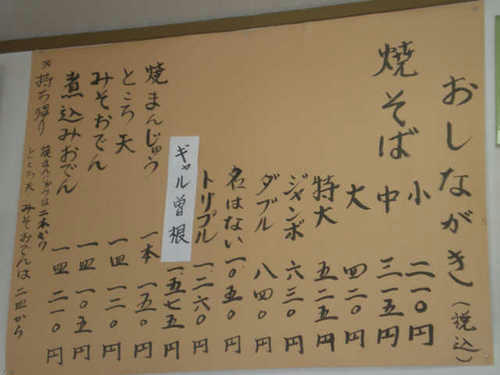 おしながき(税込)
焼そば 小 二一〇円
中 三一五円
大 四二〇円
特大 五二五円
ジャンボ 六三〇円
ダブル 八四〇円
名はない 一〇五〇円
トリプル 一二六〇円
ギャル曽根 一五七五円
焼まんじゅう 一本 一五〇円
ところ天 一皿 一二〇円
みそおでん 一皿 一〇五円
煮込みおでん 一皿 二一〇円
※持ち帰り 焼まんじゅうは二本から
ところ天 みそおでんは二皿から